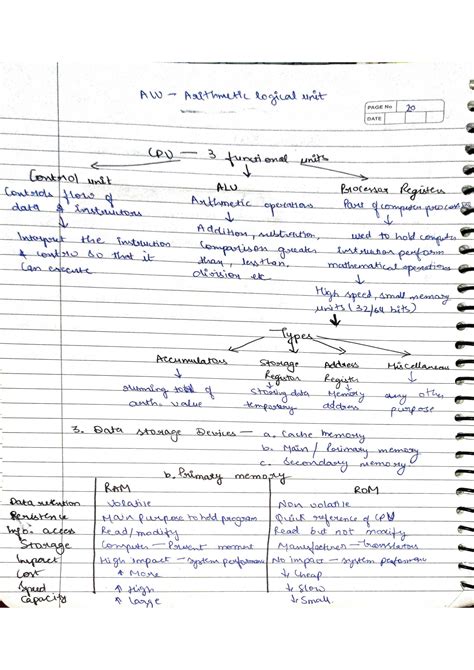 ALU - Arithmetic logical unit
PAGE No 20
DATE
CPU — 3 functional units
Control unit ALU Processor Registers
Controls flow of Arithmetic operations Part of computer processor
data & instructors
Addition, subtration, used to hold computer
Interpret the instruction Comparison greater instruction perform
& control so that it than, less than, mathematical operations
Can execute division etc
High speed, small memory
units (32/64 bits)
Types
Accumulators Storage Address Miscellaneous
Register Register
running total of storing data Memory any other
arith. value temporary address purpose
3. Data storage Devices — a. Cache memory
b. Main / Primary memory
c. Secondary memory
b. Primary memory
RAM ROM
Data retention Volatile Non volatile
Persistence Main Purpose to hold program Quick reference of CPU
Info. access Read/modify Read but not modify
Storage Computer — Present moment Manufacturer —
Impact High impact — system performance No impact — system performance
Cost ↑ More ↓ Cheap
Speed ↑ High ↓ Slow
Capacity ↑ Large ↓ Small